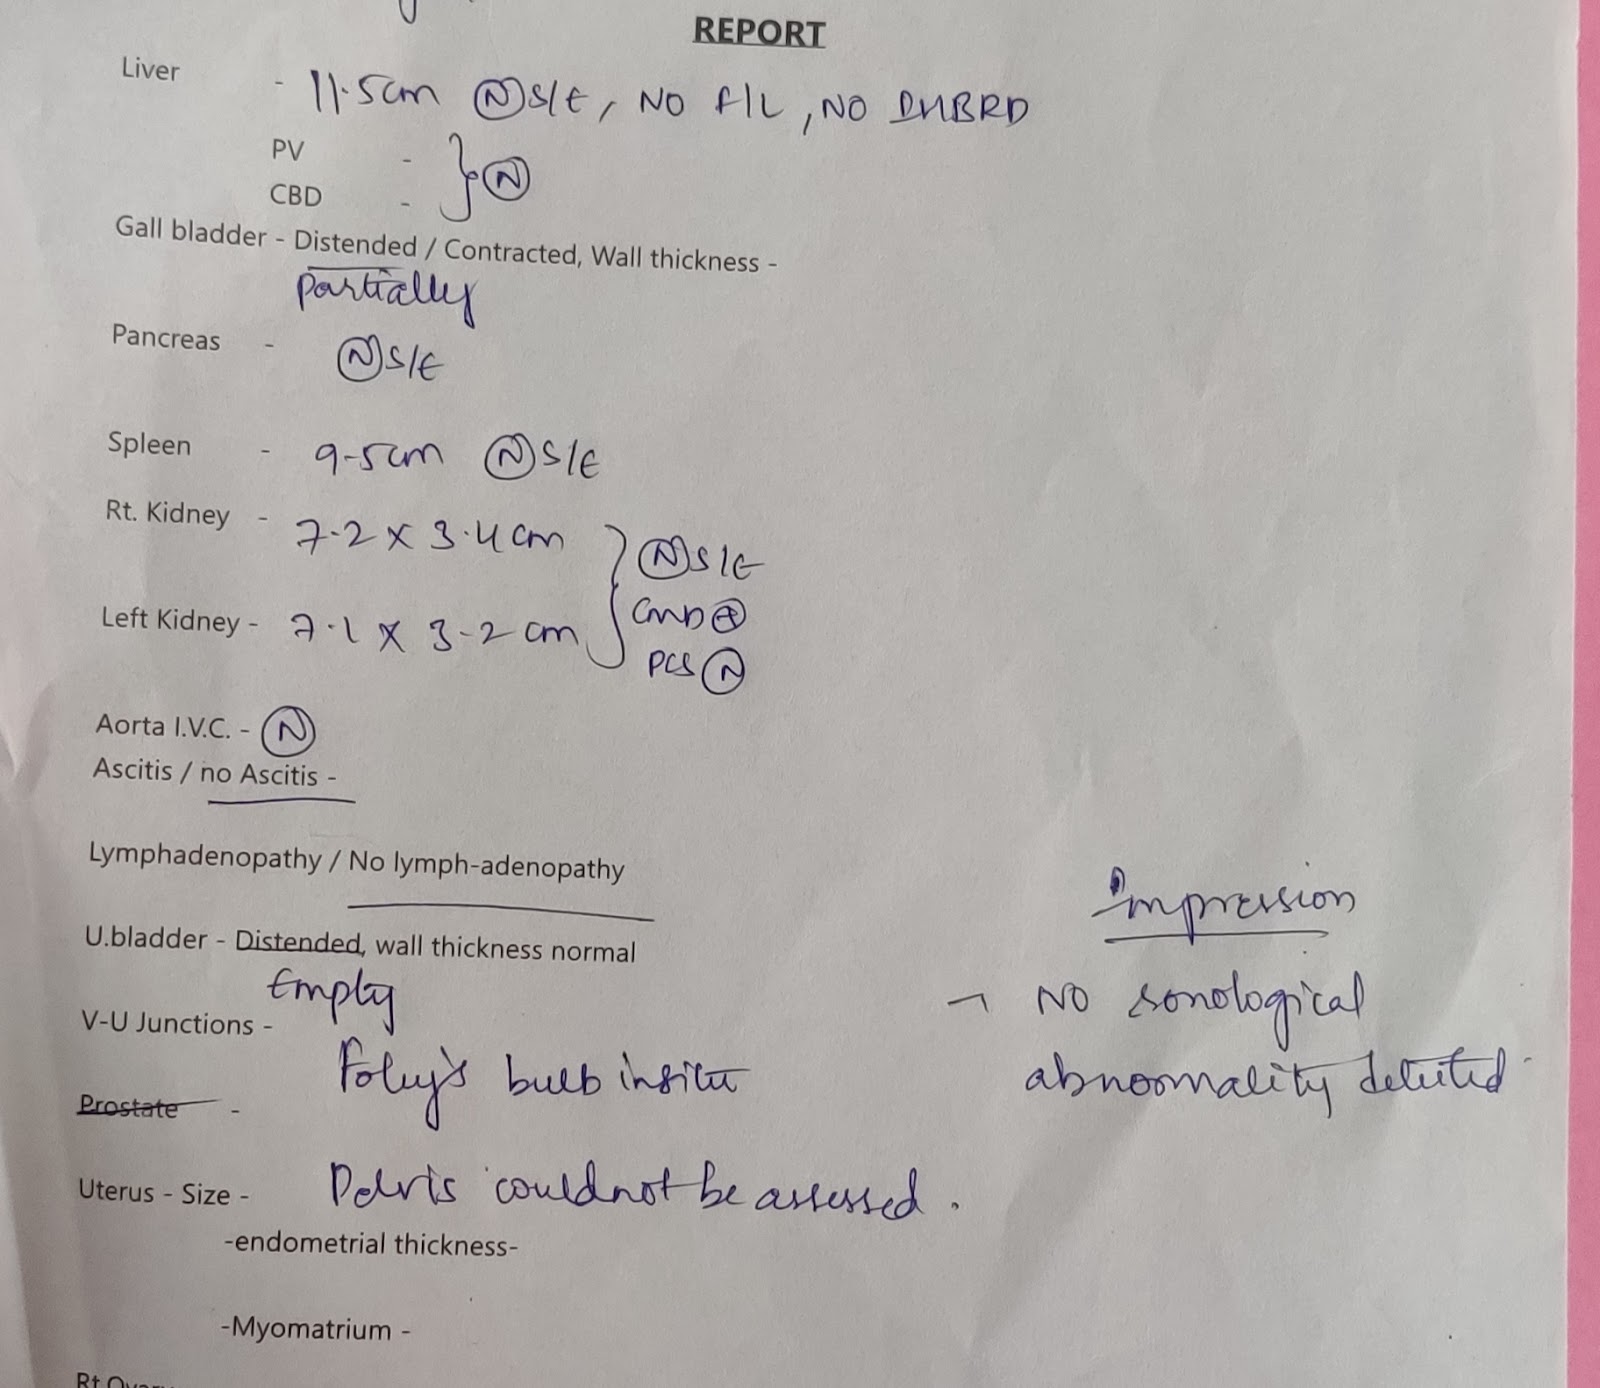 REPORT
Liver - 11.5cm Ⓝ S/E, NO F/L, NO IHBRD
PV -
CBD - } Ⓝ
Gall bladder - Distended / Contracted, Wall thickness -
Partially
Pancreas - Ⓝ S/E
Spleen - 9.5cm Ⓝ S/E
Rt. Kidney - 7.2 x 3.4 cm } Ⓝ S/E
CMD ⊕
Left Kidney - 7.1 x 3.2 cm
PCS Ⓝ
Aorta I.V.C. - Ⓝ
Ascitis / no Ascitis -
Lymphadenopathy / No lymph-adenopathy
U.bladder - Distended, wall thickness normal
Empty
V-U Junctions -
Foley's bulb insitu
Prostate -
Uterus - Size - Pelvis couldnot be assessed.
-endometrial thickness-
-Myomatrium -
Impression
→ NO sonological
abnormality detected